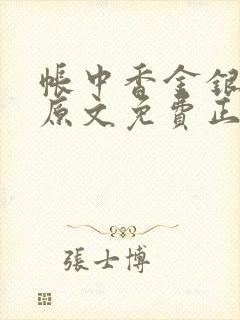 帳中香金銀
原文免費正
張士博